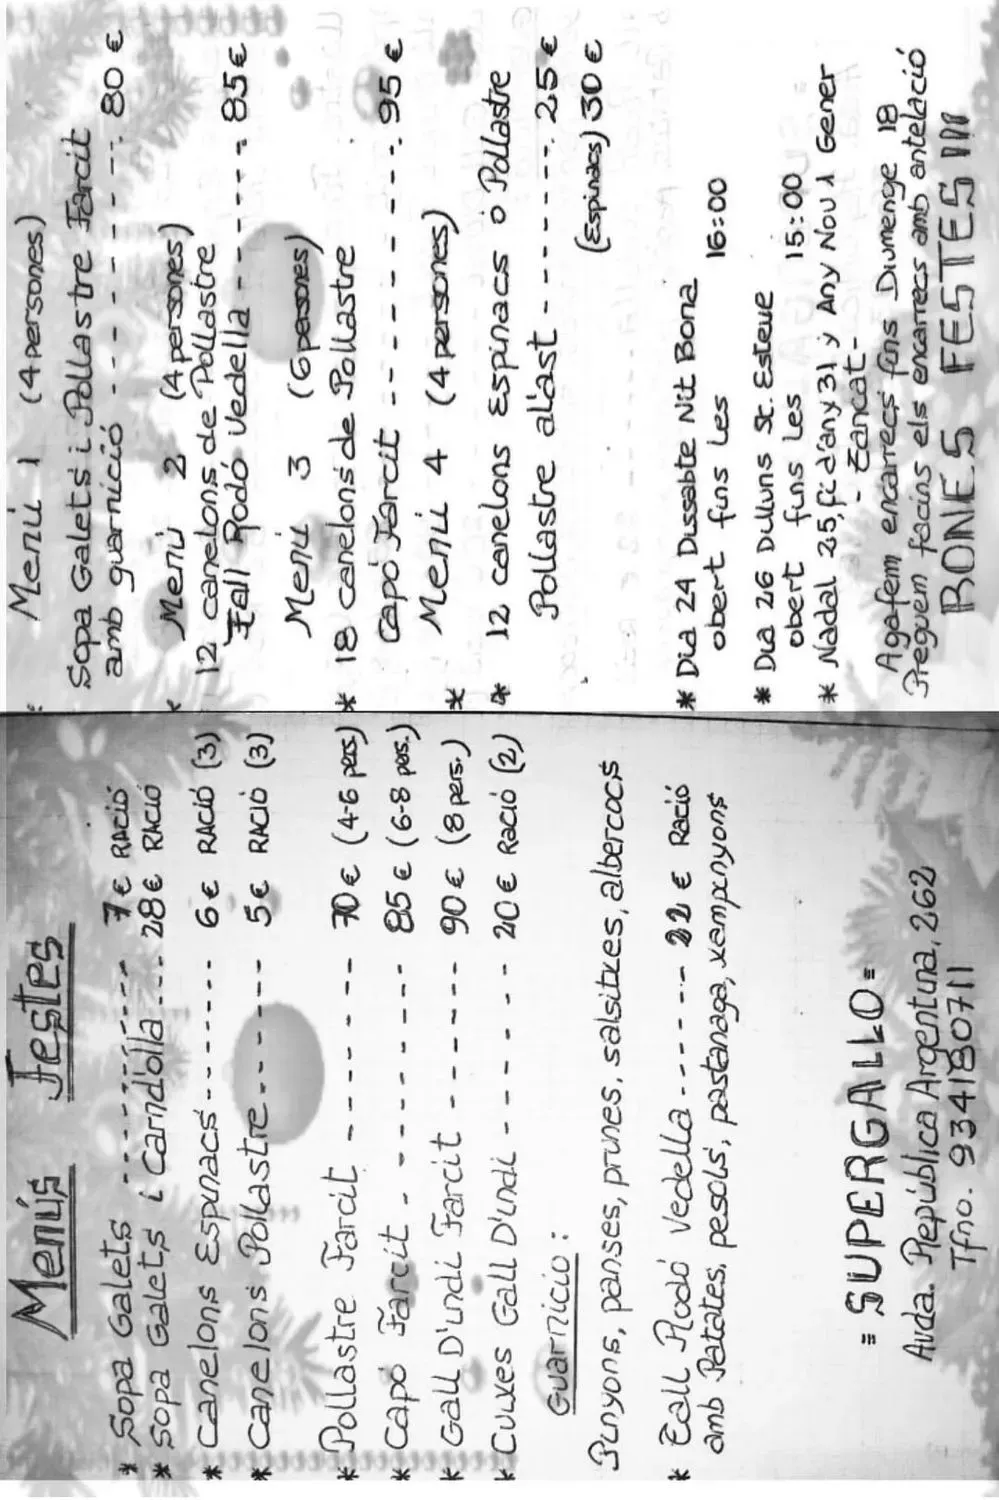 Menús Festes
* Sopa Galets ------------ 7€ RACIÓ
* Sopa Galets i Carnd'olla ---- 28€ RACIÓ
* Canelons Espinacs -------- 6€ RACIÓ (3)
* Canelons Pollastre ------ 5€ RACIÓ (3)
* Pollastre Farcit ------- 70€ (4-6 pers)
* Capó Farcit --------- 85€ (6-8 pers.)
* Gall D'indi Farcit ------ 90€ (8 pers.)
* Cuixes Gall D'indi ------ 20€ Ració (2)
Guarnicio:
Pinyons, panses, prunes, salsitxes, albercocs
* Tall Rodó Vedella ------ 22€ Ració
amb Patates, pesols, pastanaga, xampinyons
= SUPERGALLO =
Avda. República Argentina, 262
Tfno. 934180711
* Menú 1 (4 persones)
Sopa Galets i Pollastre Farcit
amb guarnició ------- 80€
* Menú 2 (4 persones)
12 canelons de Pollastre
Tall Rodó Vedella ----- 85€
Menú 3 (6 persones)
* 18 canelons de Pollastre
Capó Farcit ------- 95€
* Menú 4 (4 persones)
* 12 canelons Espinacs ó Pollastre
Pollastre a l'ast ------- 25€
(Espinacs) 30€
* Dia 24 Dissabte Nit Bona
obert fins les 16:00
* Dia 26 Dilluns St. Esteve
obert fins les 15:00
* Nadal 25, fi d'any 31 y Any Nou 1 Gener
- Tancat -
Agafem encarrecs fins Diumenge 18
Preguem facins els encarrecs amb antelació
BONES FESTES!!!